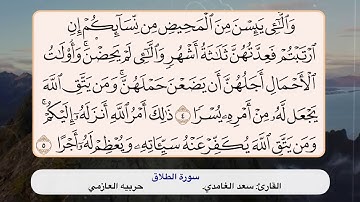 وَٱلَّـٰٓـِٔي يَئِسْنَ مِنَ ٱلْمَحِيضِ مِن نِّسَآئِكُمْ إِنِ
ٱرْتَبْتُمْ فَعِدَّتُهُنَّ ثَلَـٰثَةُ أَشْهُرٍ وَٱلَّـٰٓـِٔي لَمْ يَحِضْنَ ۚ وَأُو۟لَـٰتُ
ٱلْأَحْمَالِ أَجَلُهُنَّ أَن يَضَعْنَ حَمْلَهُنَّ ۚ وَمَن يَتَّقِ ٱللَّهَ
يَجْعَل لَّهُۥ مِنْ أَمْرِهِۦ يُسْرًا ٤ ذَٰلِكَ أَمْرُ ٱللَّهِ أَنزَلَهُۥٓ إِلَيْكُمْ ۚ
وَمَن يَتَّقِ ٱللَّهَ يُكَفِّرْ عَنْهُ سَيِّـَٔاتِهِۦ وَيُعْظِمْ لَهُۥٓ أَجْرًا ٥
سورة الطلاق
القارئ: سعد الغامدي. حربيه العازمي